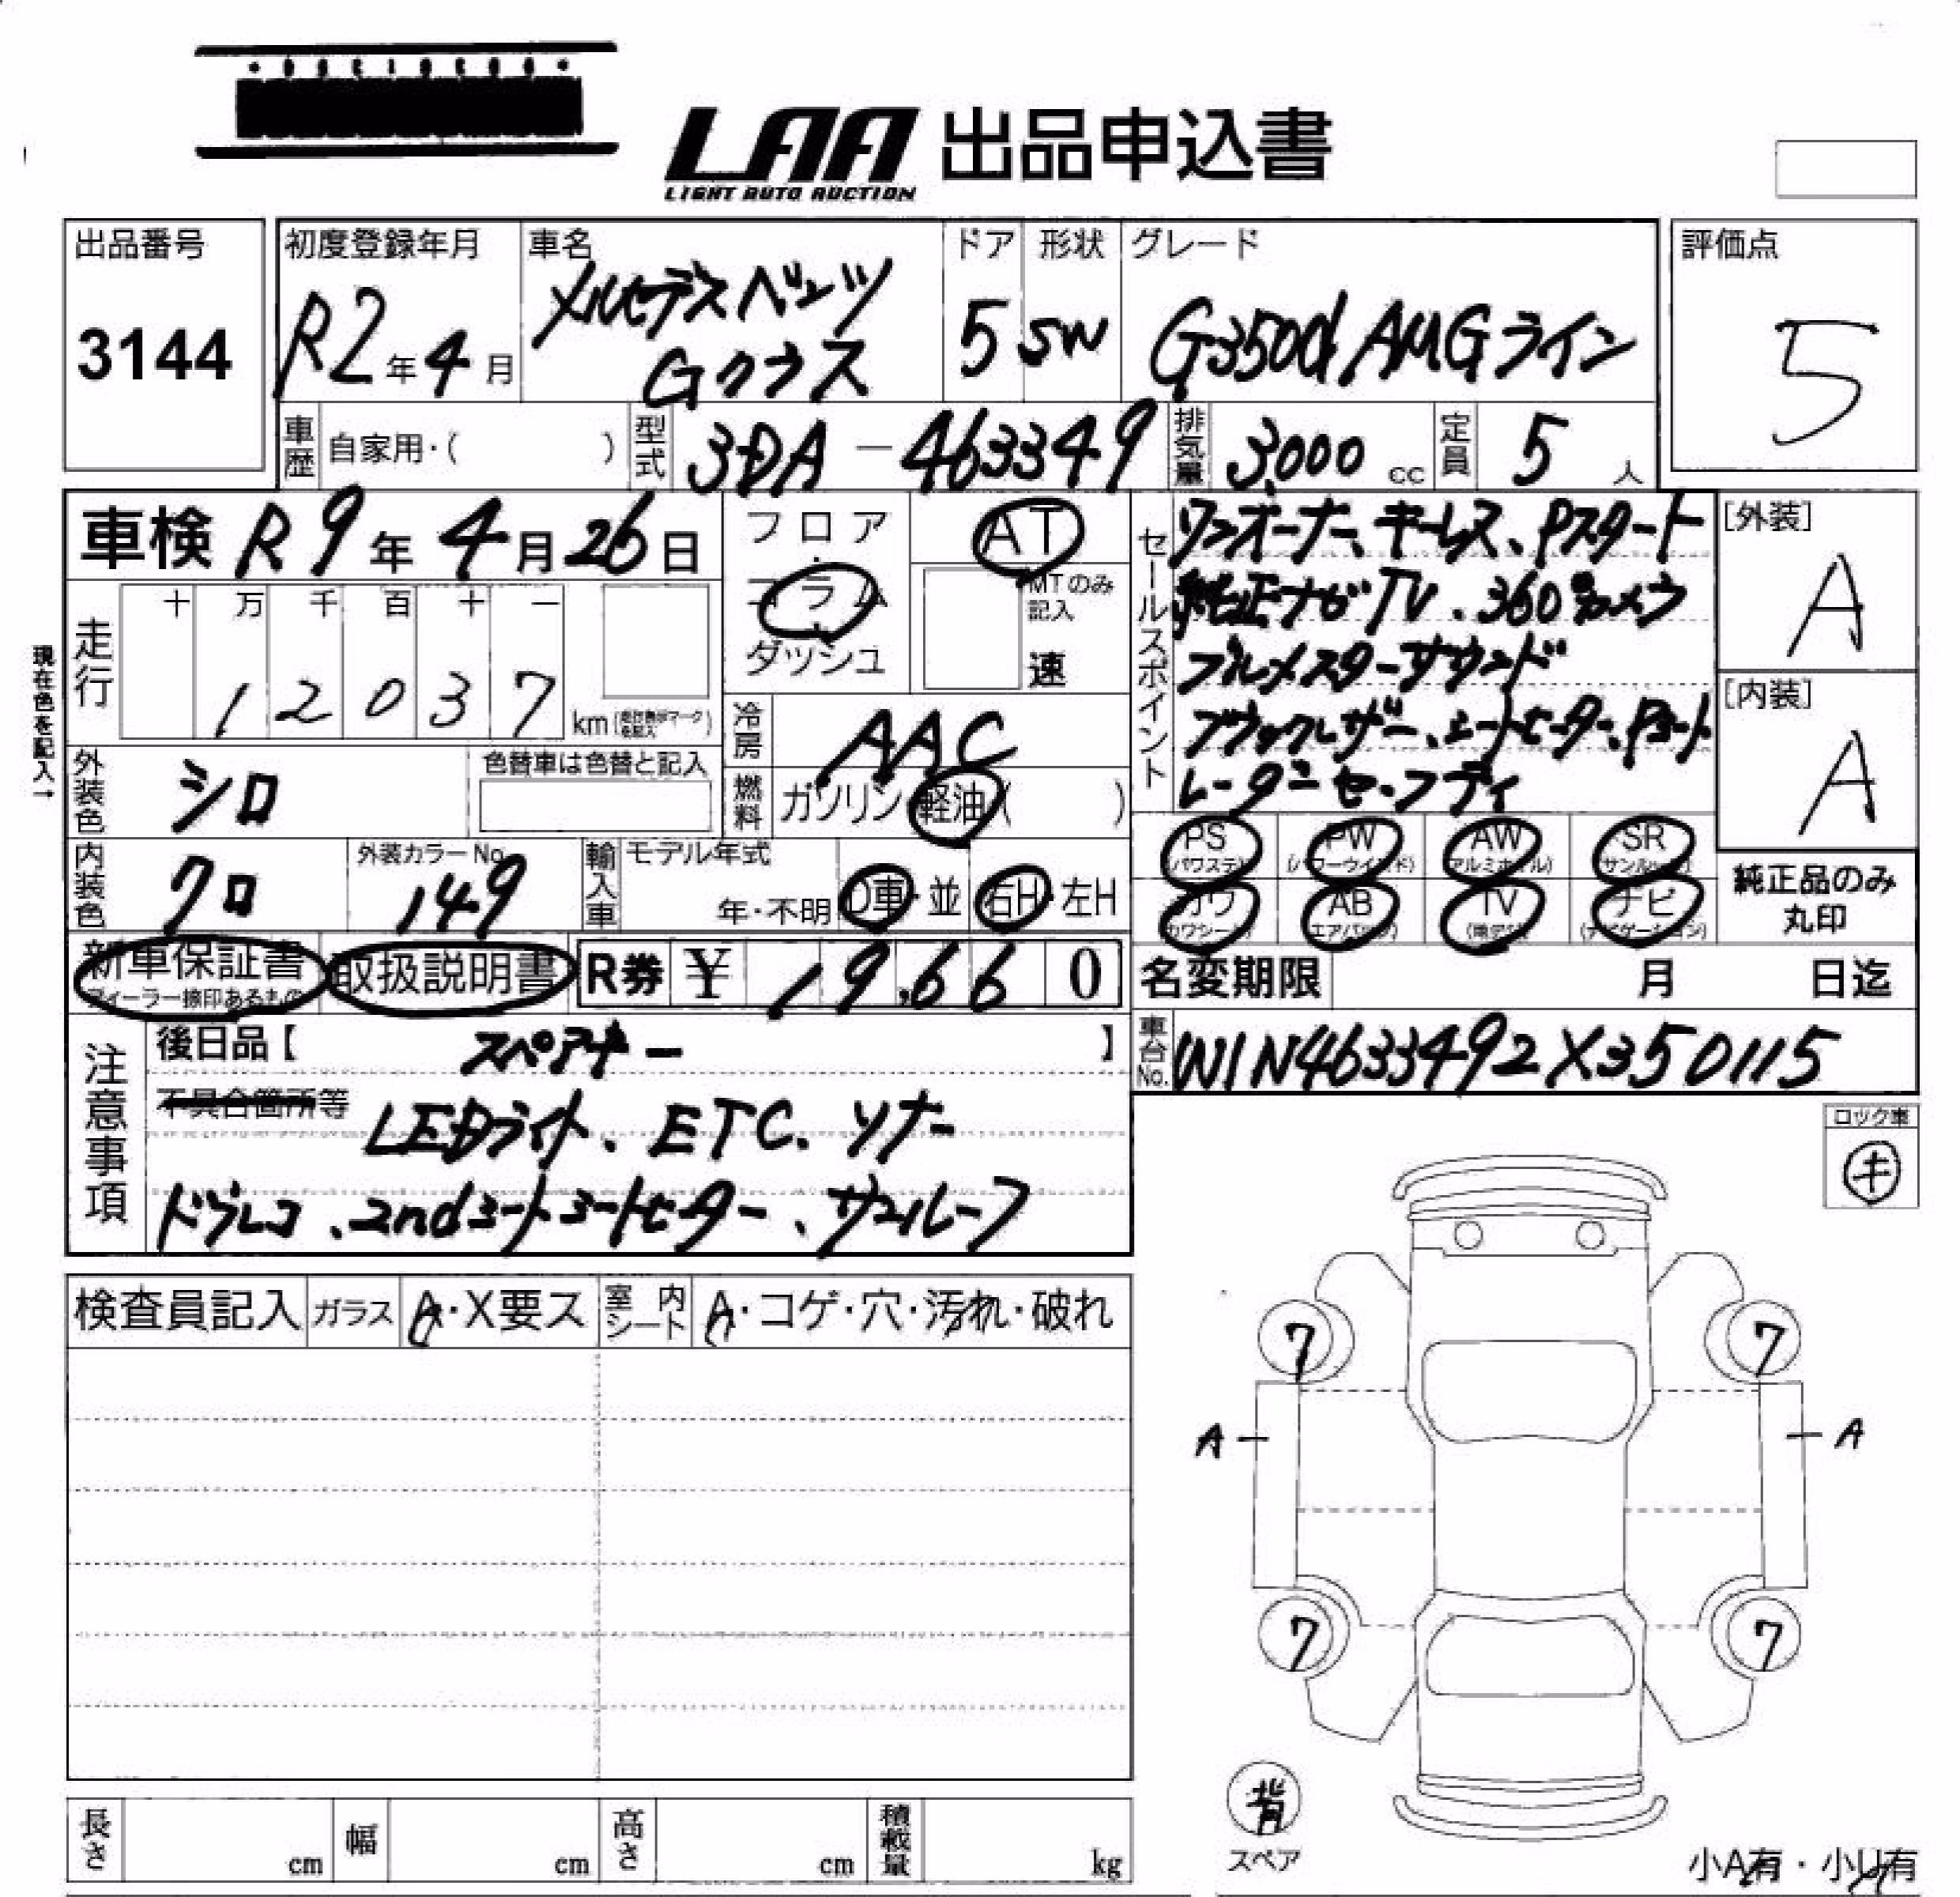 LAA 出品申込書
LIGHT AUTO AUCTION
出品番号
3144
初度登録年月
R2年4月
車名
メルセデスベンツ
Gクラス
ドア
5
形状
SW
グレード
G350d AMGライン
評価点
5
車歴 自家用・( )
型式 3DA-463349
排気量 3,000 cc
定員 5 人
車検 R9年4月26日
フロア・コラム・ダッシュ
AT
MTのみ記入
速
セールスポイント
ワンオーナー、キーレス、Pスタート
純正ナビTV、360°カメラ
ブルメスターサウンド
ブラックレザー、シートヒーター、Pシート
レーダーセーフティ
[外装]
A
[内装]
A
現在色を記入→
走行
十 万 千 百 十 一
1 2 0 3 7 km
冷房 AAC
外装色 シロ
色替車は色替と記入
燃料 ガソリン・軽油( )
内装色 クロ
外装カラーNo.
149
輸入車
モデル年式
年・不明
D車・並
右H・左H
PS (パワステ)
PW (パワーウインド)
AW (アルミホイル)
SR (サンルーフ)
カワ (カワシート)
AB (エアバッグ)
TV
ナビ (ナビゲーション)
純正品のみ
丸印
新車保証書
ディーラー捺印あるもの
取扱説明書
R券 ¥ 19,660
名変期限 月 日迄
車台No. W1N4633492X350115
注意事項
後日品【 スペアキー 】
不具合箇所等
LEDライト、ETC、ソナー
ドラレコ、2ndシートシートヒーター、サンルーフ
ロック車
キ
検査員記入
ガラス A・X要ス
室内シート A・コゲ・穴・汚れ・破れ
7 7
A A
7 7
背
スペア
長さ cm
幅 cm
高さ cm
積載量 kg
小A有・小U有